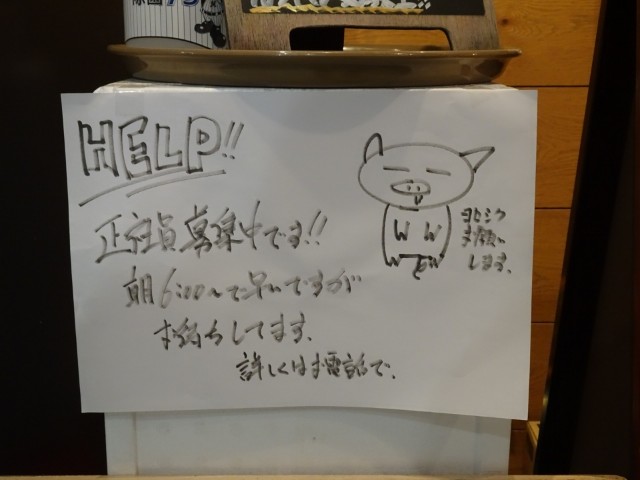 HELP!!
正社員募集中です!!
朝6:00〜で早いですが
お待ちしてます.
詳しくはお電話で.
ヨロシク
お願い
します.